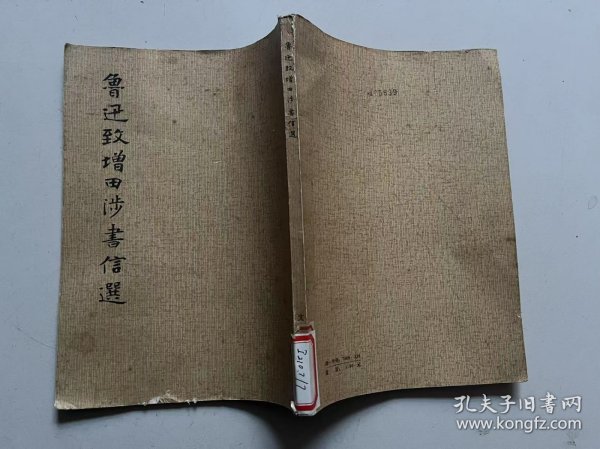 魯迅致增田涉書信選
魯迅致增田涉書信選
文
I210.7/7
孔夫子旧書网
www.kongfz.com